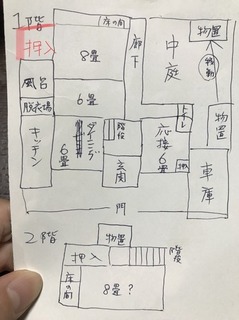 1階
押入
床の間
8畳
廊下
中庭
物置
移動
風呂
6畳
脱衣場
キッチン
6畳
ダイニング
階段
玄関
応接
6畳
トイレ
押
物置
車庫
門
2階
物置
押入
階段
床の間
8畳?